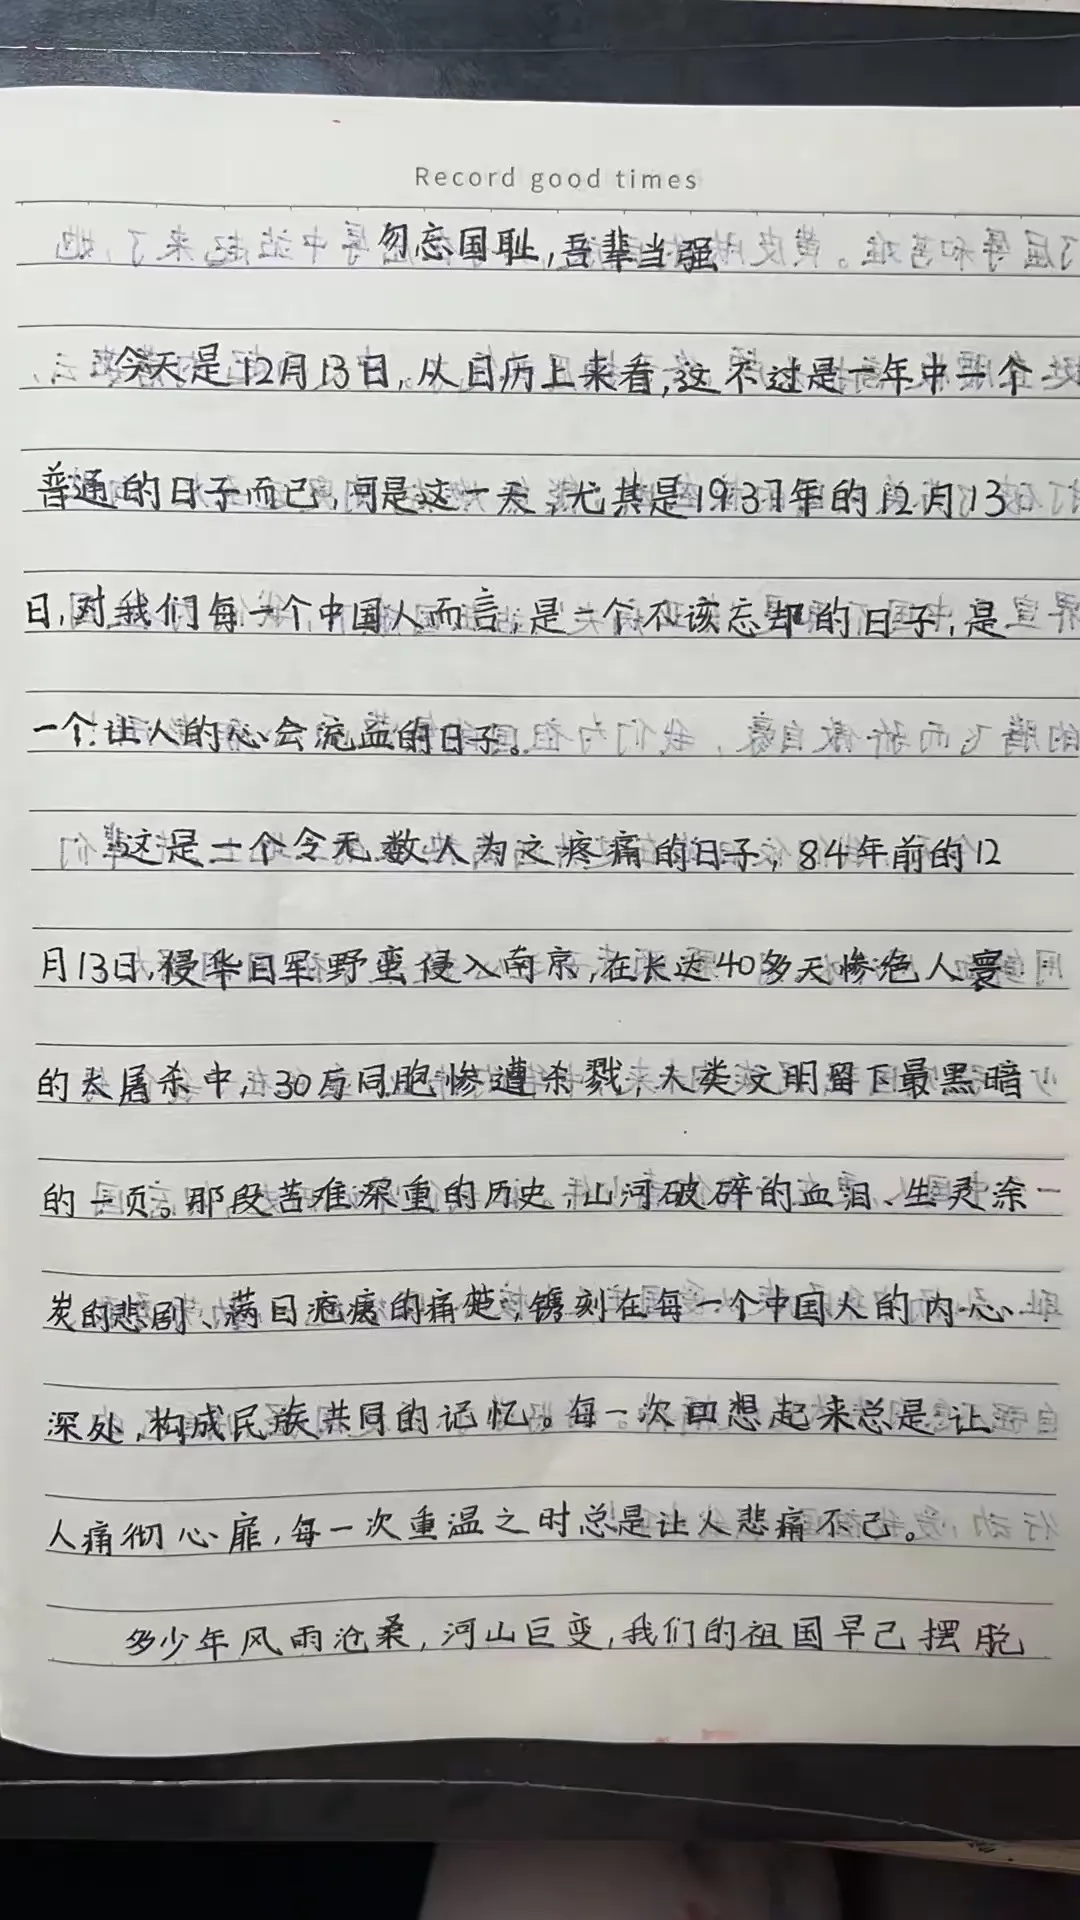 Record good times
勿忘国耻,吾辈当强
今天是12月13日,从日历上来看,这不过是一年中一个
普通的日子而已,可是这一天,尤其是1937年的12月13
日,对我们每一个中国人而言,是一个不该忘却的日子,是
一个让人的心会流血的日子。
这是一个令无数人为之疼痛的日子,84年前的12
月13日,侵华日军野蛮侵入南京,在长达40多天惨绝人寰
的大屠杀中,30万同胞惨遭杀戮,人类文明留下最黑暗
的一页。那段苦难深重的历史,山河破碎的血泪、生灵涂
炭的悲剧、满目疮痍的痛楚,镌刻在每一个中国人的内心
深处,构成民族共同的记忆。每一次回想起来总是让
人痛彻心扉,每一次重温之时总是让人悲痛不已。
多少年风雨沧桑,河山巨变,我们的祖国早已摆脱